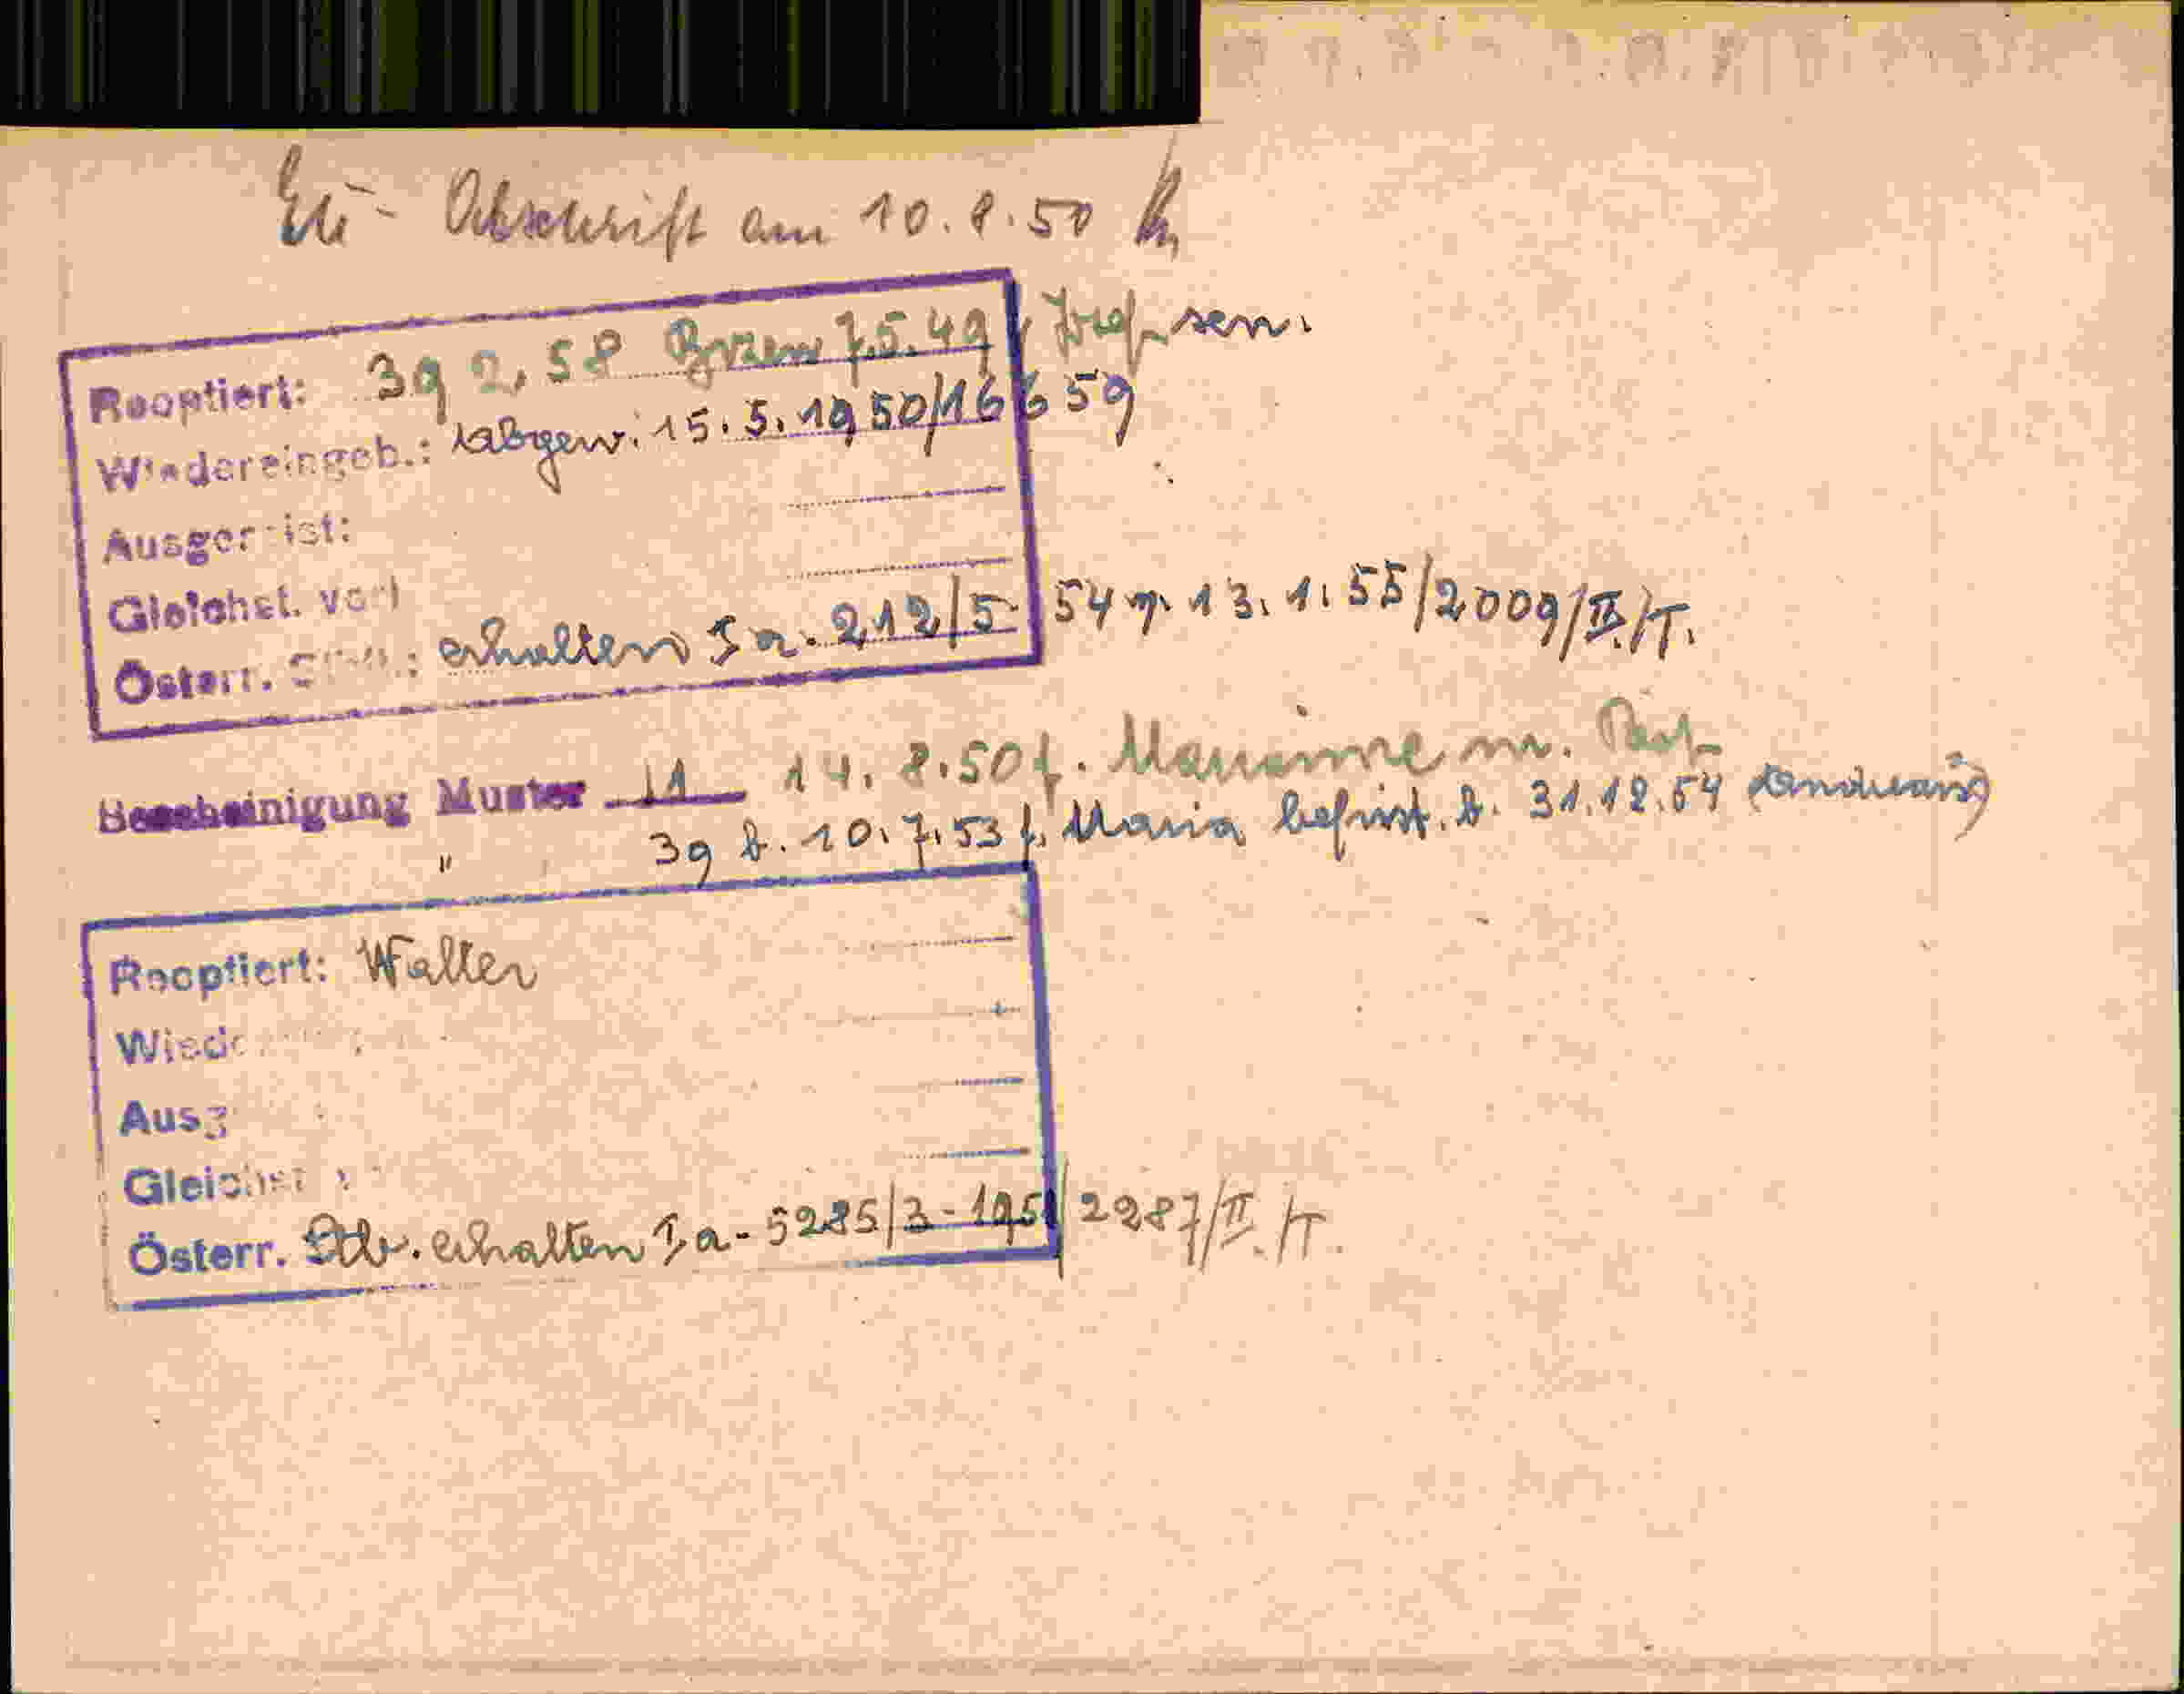 Abschrift am 10.8.50
Reoptiert: 39 2,58 Bozen 7.5.49 Josef sen.
Wiedereingeb.: abgew. 15.5.1950/16659
Ausgereist:
Gleichst. vorl
Österr. erhalten Ia-212/5 54 v. 13.1.55/2009/II./T.
Bescheinigung Muster 11 14.8.50 f. Marianne m.
" 39 b. 10.7.53 f. Maria befrist. b. 31.12.54
Reoptiert: Walter
Wied
Ausg
Gleichst
Österr. Stb. erhalten Ia-5285/3-1951/2287/II./T.